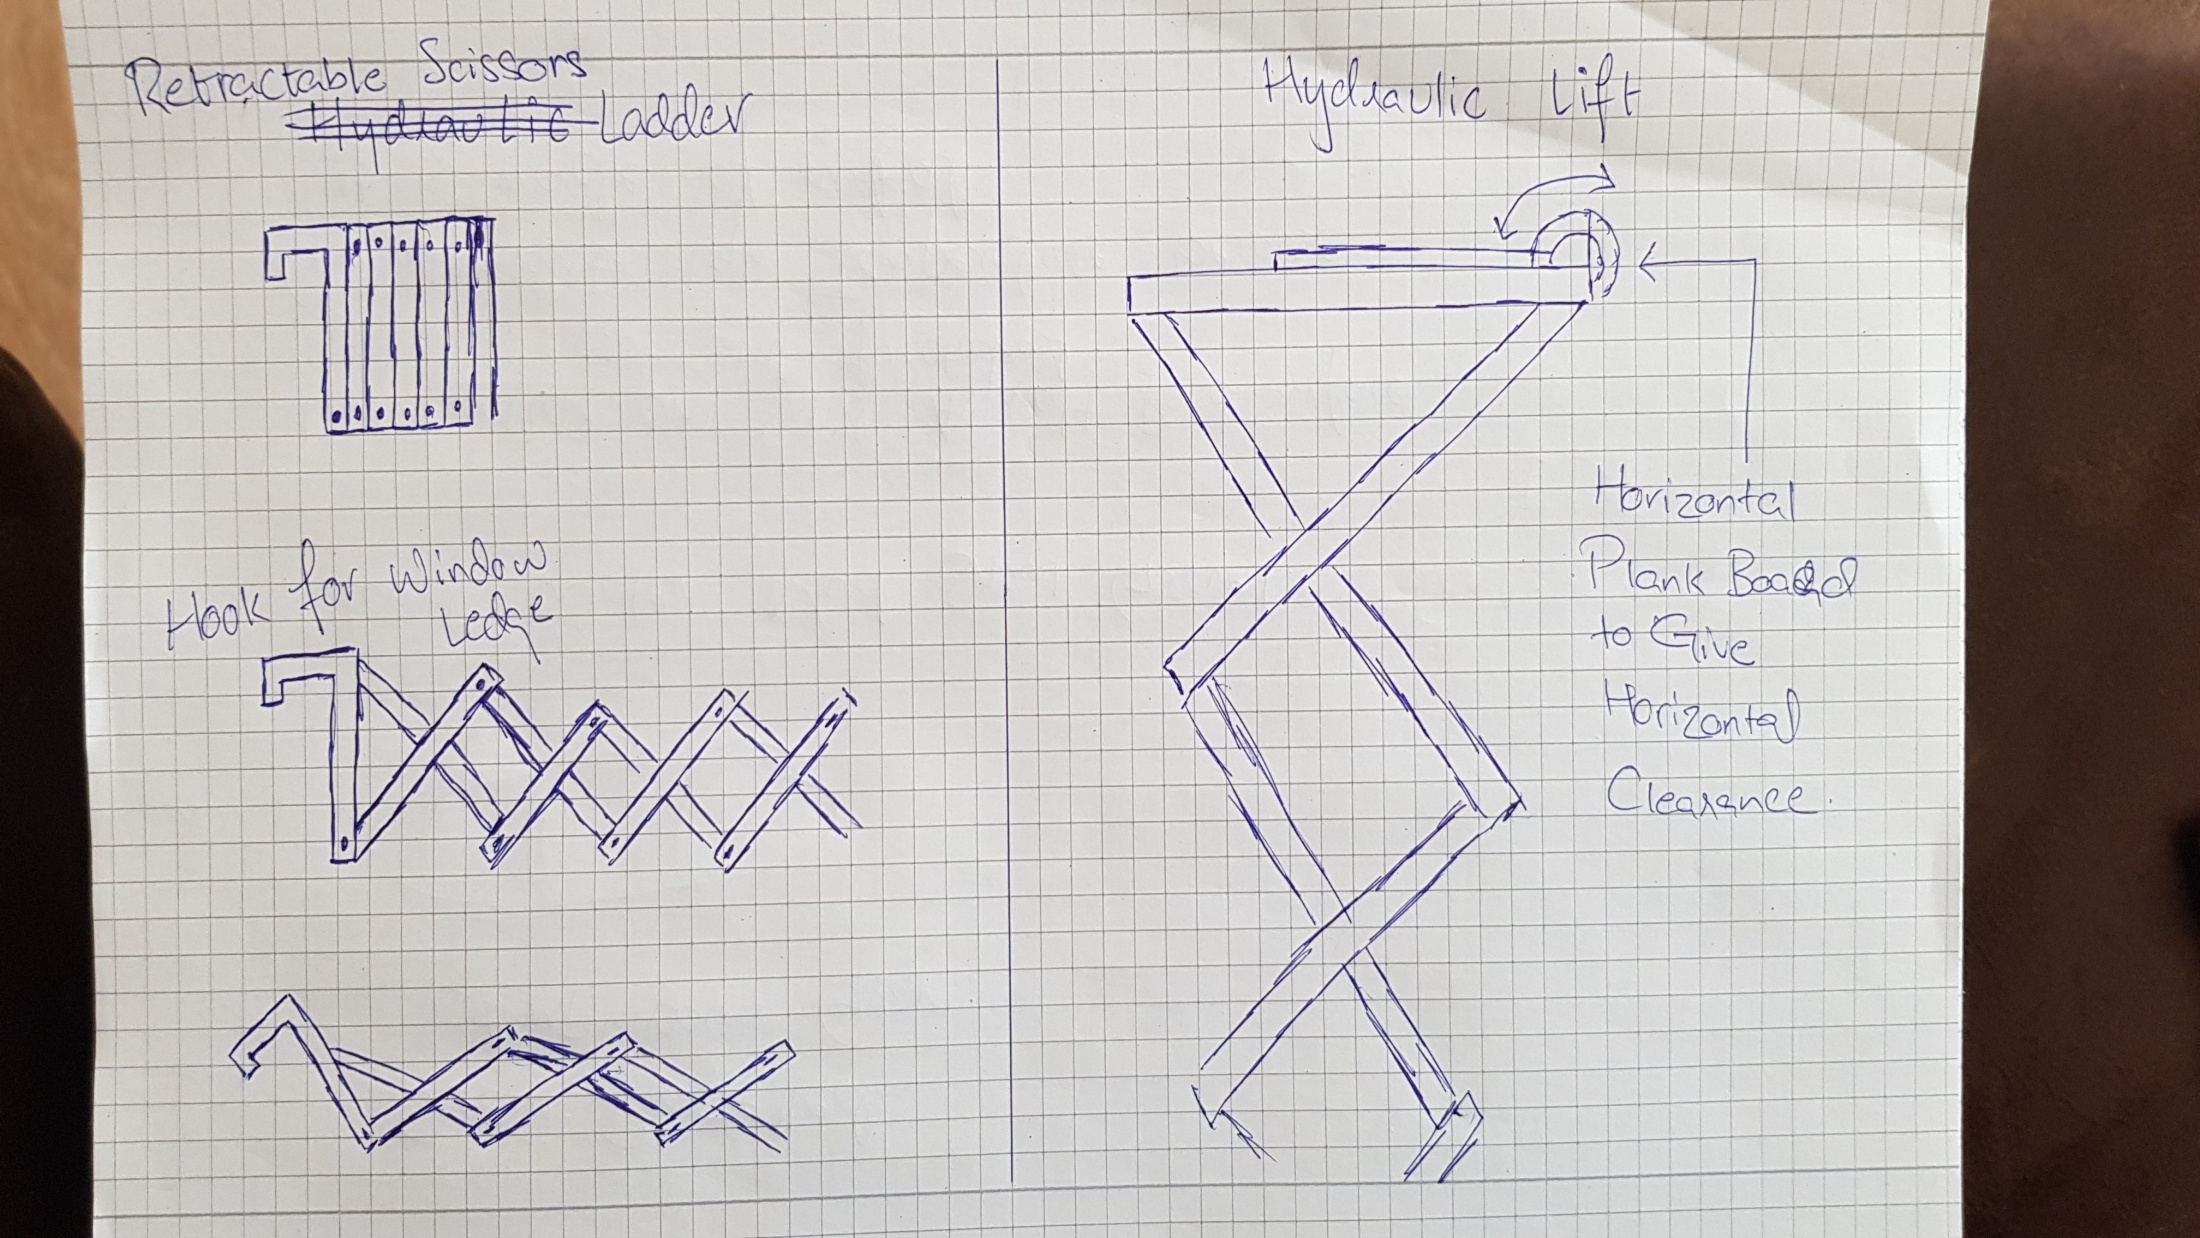 Retractable Scissors
Hydraulic Ladder
Hook for Window
Ledge
Hydraulic Lift
Horizontal
Plank Board
to Give
Horizontal
Clearance.